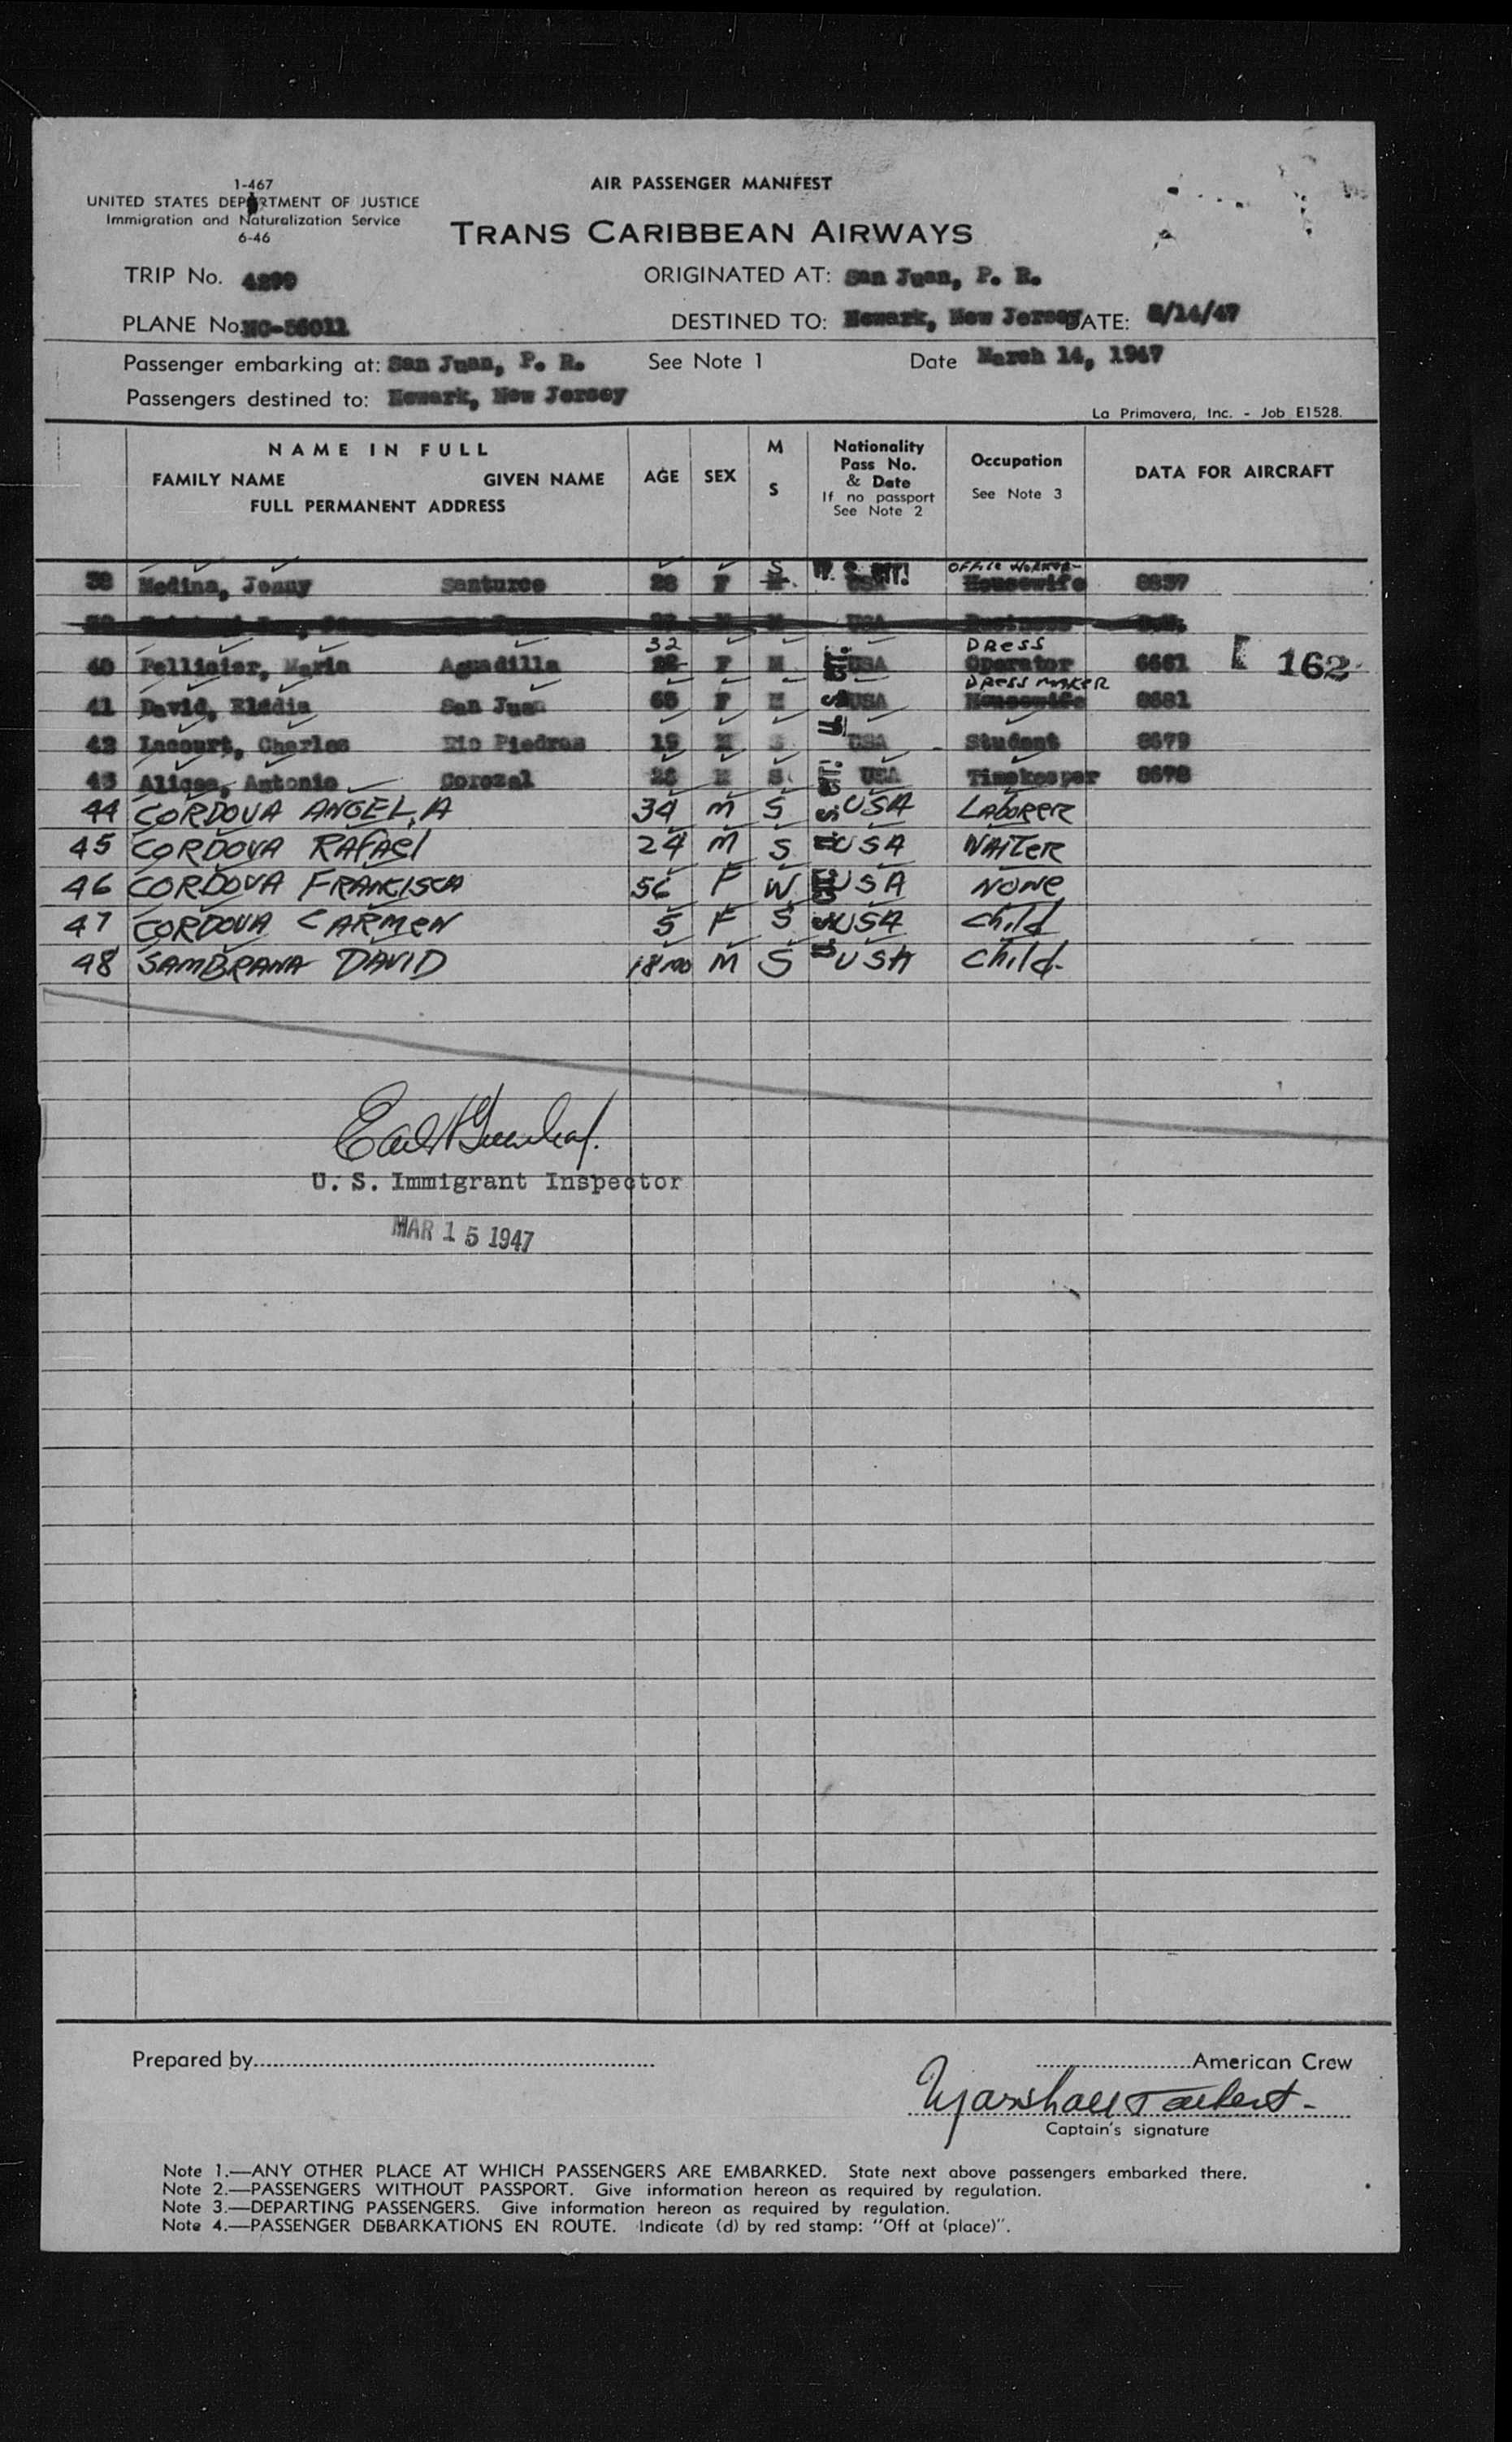 1-467
UNITED STATES DEPARTMENT OF JUSTICE
Immigration and Naturalization Service
6-46
AIR PASSENGER MANIFEST
TRANS CARIBBEAN AIRWAYS
TRIP No. 4299 ORIGINATED AT: San Juan, P. R.
PLANE No. NC-86011 DESTINED TO: Newark, New Jersey DATE: 3/14/47
Passenger embarking at: San Juan, P. R. See Note 1 Date March 14, 1947
Passengers destined to: Newark, New Jersey
La Primavera, Inc. - Job E1528.
NAME IN FULL
FAMILY NAME GIVEN NAME
FULL PERMANENT ADDRESS
AGE SEX M S
Nationality
Pass No.
& Date
If no passport
See Note 2
Occupation
See Note 3
DATA FOR AIRCRAFT
OFFICE WORKER
38 Medina, Jenny Santurce 28 F S USA Housewife
32 DRESS
40 Pellicier, Maria Aguadilla F M USA Operator 162
DRESS MAKER
41 David, Elddia San Juan 65 F M USA Housewife 8681
42 Lacourt, Charles Rio Piedras 19 M S USA Student 8679
43 Alicea, Antonio Corozal M S USA Timekeeper 8678
44 CORDOVA ANGEL, A 34 M S USA LABORER
45 CORDOVA RAFAEl 24 M S USA WAITER
46 CORDOVA FRANCISCA 56 F W USA NONE
47 CORDOVA CARMEN 5 F S USA child
48 SAMBRANA DAVID 18 mo M S USA child
U. S. Immigrant Inspector
MAR 15 1947
Prepared by American Crew
Marshall
Captain's signature
Note 1.—ANY OTHER PLACE AT WHICH PASSENGERS ARE EMBARKED. State next above passengers embarked there.
Note 2.—PASSENGERS WITHOUT PASSPORT. Give information hereon as required by regulation.
Note 3.—DEPARTING PASSENGERS. Give information hereon as required by regulation.
Note 4.—PASSENGER DEBARKATIONS EN ROUTE. Indicate (d) by red stamp: "Off at (place)".